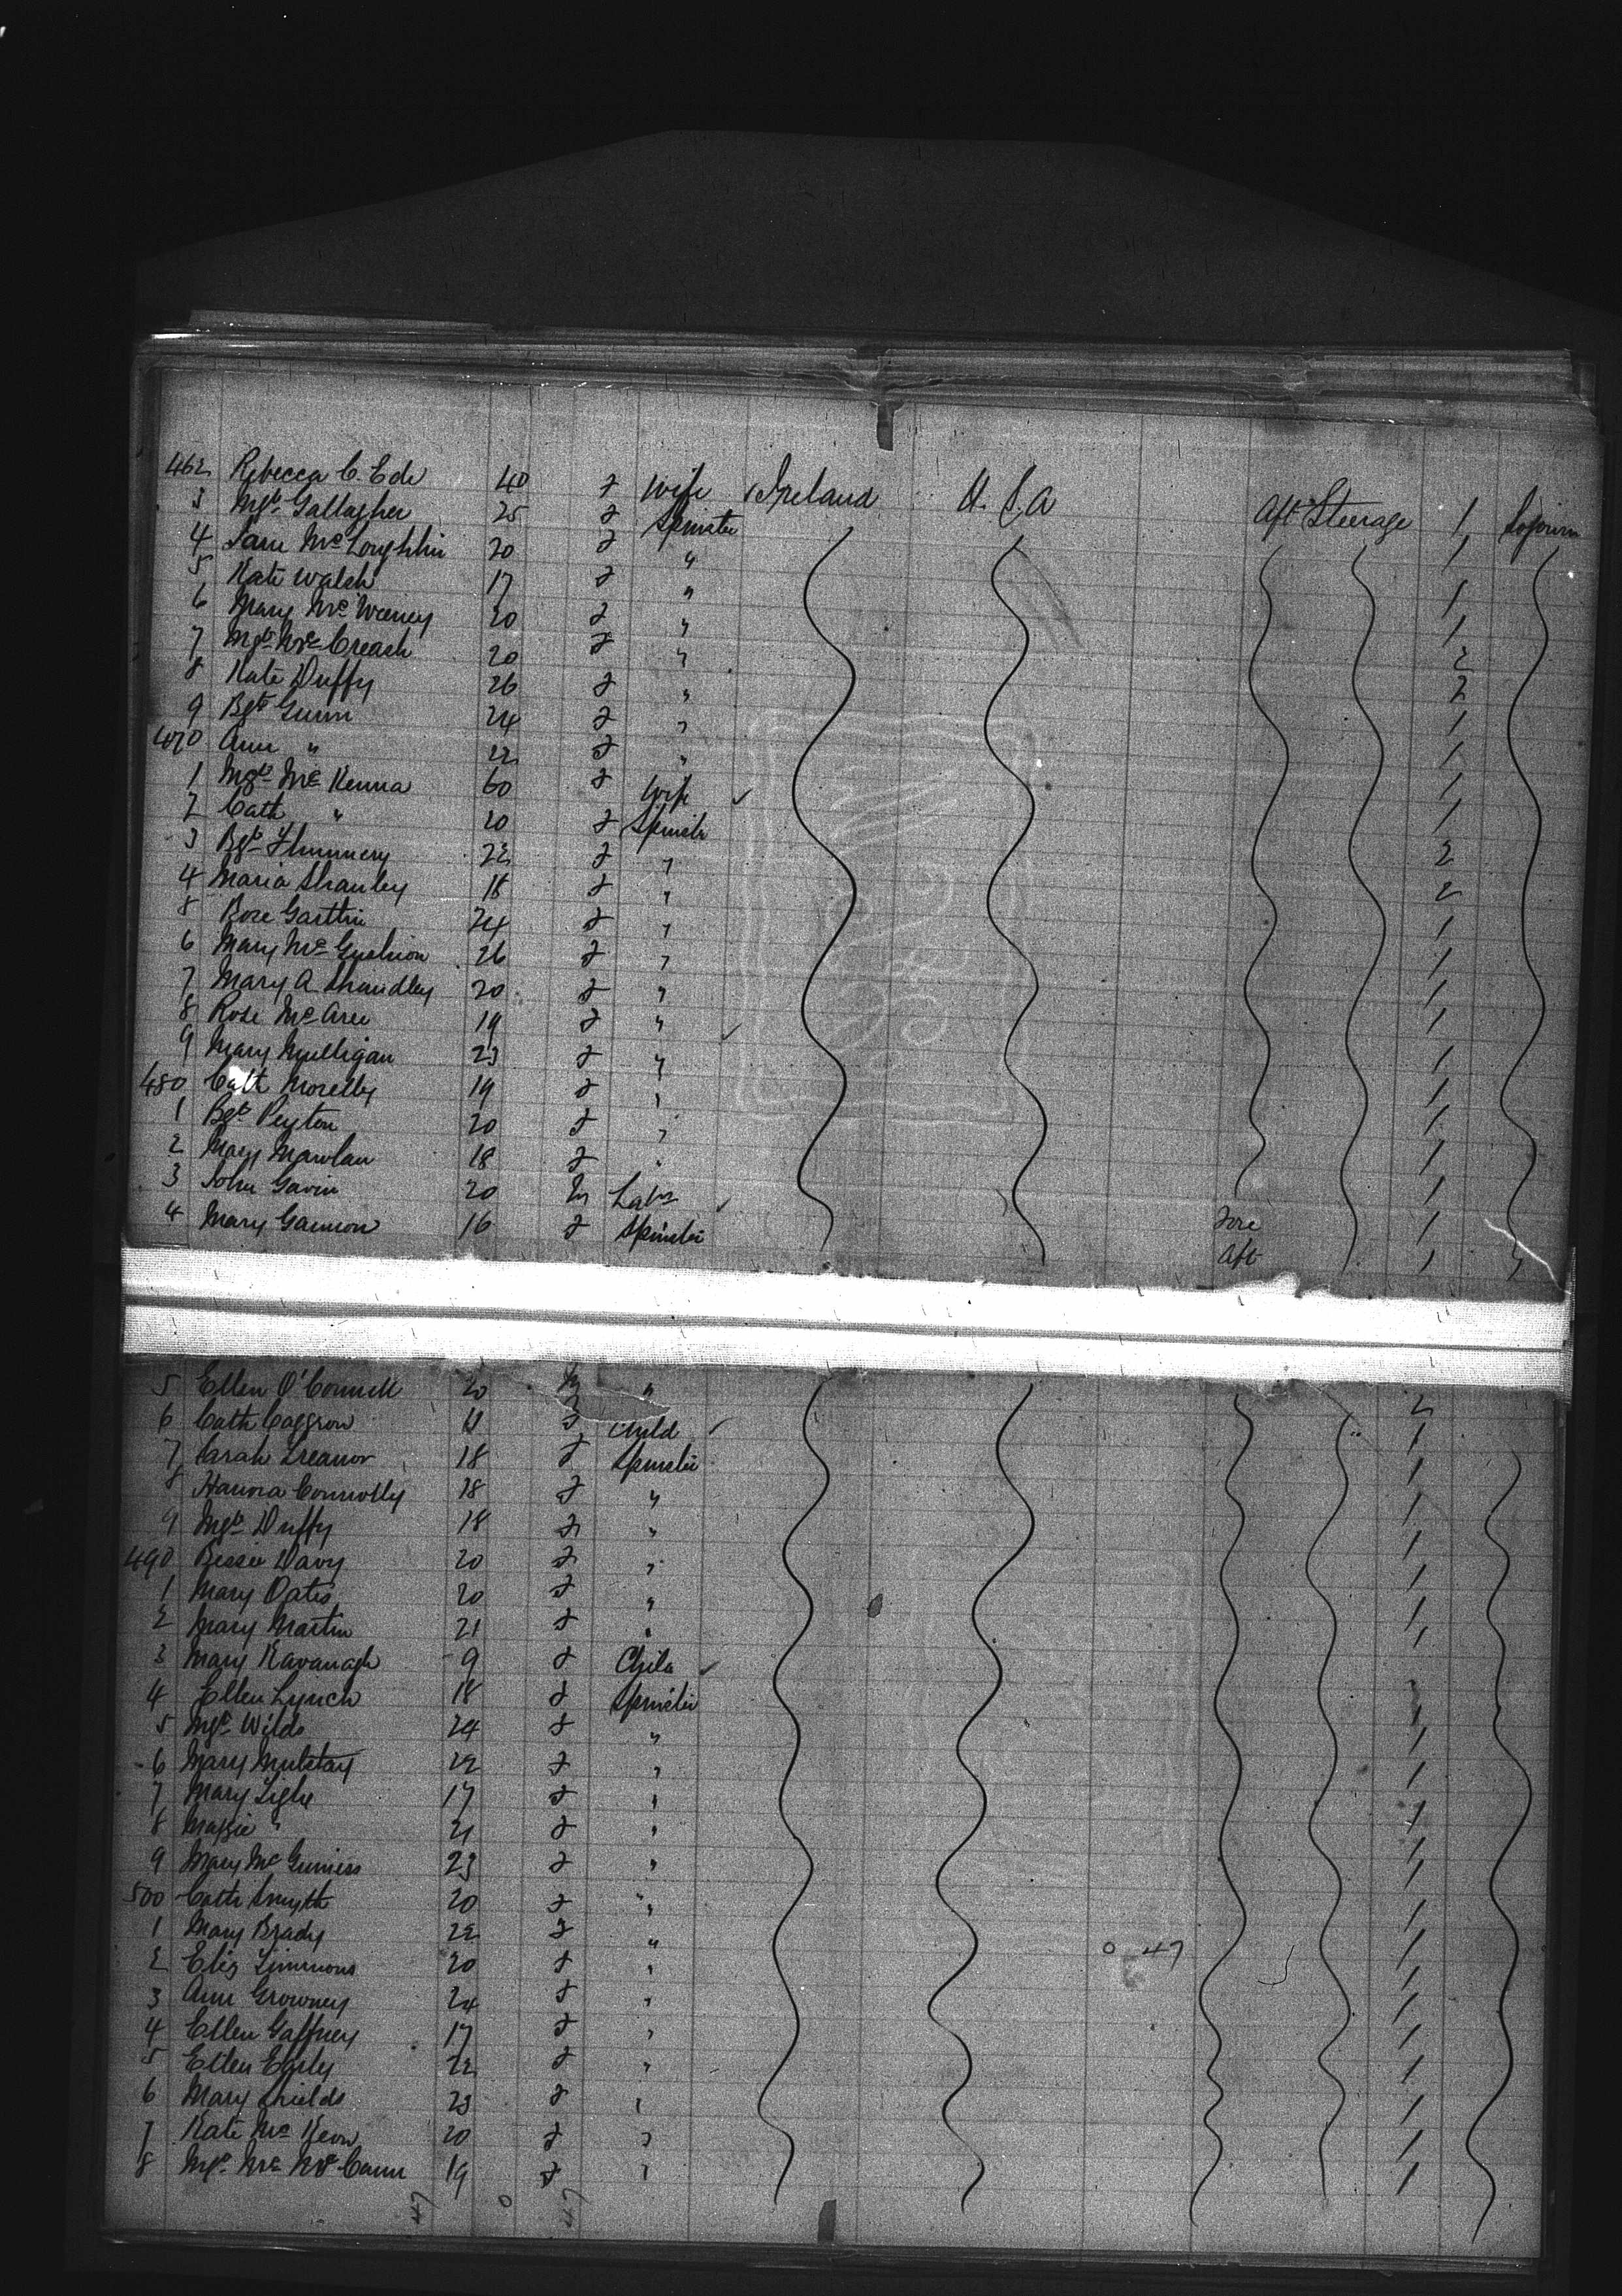 462 Rebecca C. Ede 40 f Wife Ireland U.S.A Aft Steerage 1 Sojourn
3 Mgt Gallagher 25 f Spinster 1
4 Jane McLoughlin 20 f " 1
5 Kate Walsh 17 f " 1
6 Mary McWeeney 20 f " 2
7 Mgt McCreash 20 f " 2
8 Kate Duffy 26 f " 1
9 Bgt Gunn 24 f " 1
470 Ann " 22 f " 1
1 Mgt McKenna 60 f Wife 1
2 Cath " 20 f Spinstr 2
3 Bgt Flummery 22 f " 2
4 Maria Shanley 18 f " 1
5 Rose 24 f " 1
6 Mary 26 f " 1
7 Mary A. Shandley 20 f " 1
8 Rose McAree 19 f " 1
9 Mary Mulligan 23 f " 1
480 Cath Morelly 19 f " 1
1 Bgt Peyton 20 f " 1
2 Mary 18 f " 1
3 John Gavin 20 m Labr Fore 1
4 Mary Gannon 16 f Spinster Aft 1
5 Ellen O'Connell 20 " 2
6 Cath 11 f Child 1
7 Sarah Treanor 18 f Spinster 1
8 Hanora Connolly 18 f " 1
9 Mgt Duffy 18 f " 1
490 Bessie Davy 20 f " 1
1 Mary Oates 20 f " 1
2 Mary Martin 21 f " 1
3 Mary Kavanagh 9 f Child
4 Ellen Lynch 18 f Spinster 1
5 Mgt Wilds 24 f " 1
6 Mary 22 f " 1
7 Mary Tighe 17 f " 1
8 Maggie " 21 f " 1
9 Mary McGuiniss 23 f " 1
500 Cath Smyth 20 f " 1
1 Mary Brady 22 f " 1
2 Eliz Timmons 20 f " 0 47 1
3 Ann Growney 24 f " 1
4 Ellen Gaffney 17 f " 1
5 Ellen Early 22 f " 1
6 Mary Shields 23 f " 1
7 Kate McKeon 20 f " 1
8 Mgt Mc McCann 19 f " 1
47 0 47